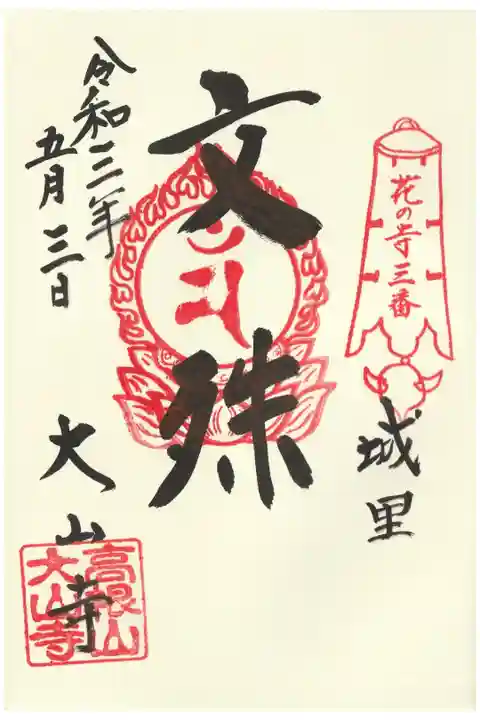 花の寺三番
城里
文殊
令和三年
五月三日
大山寺
高根山
大山寺